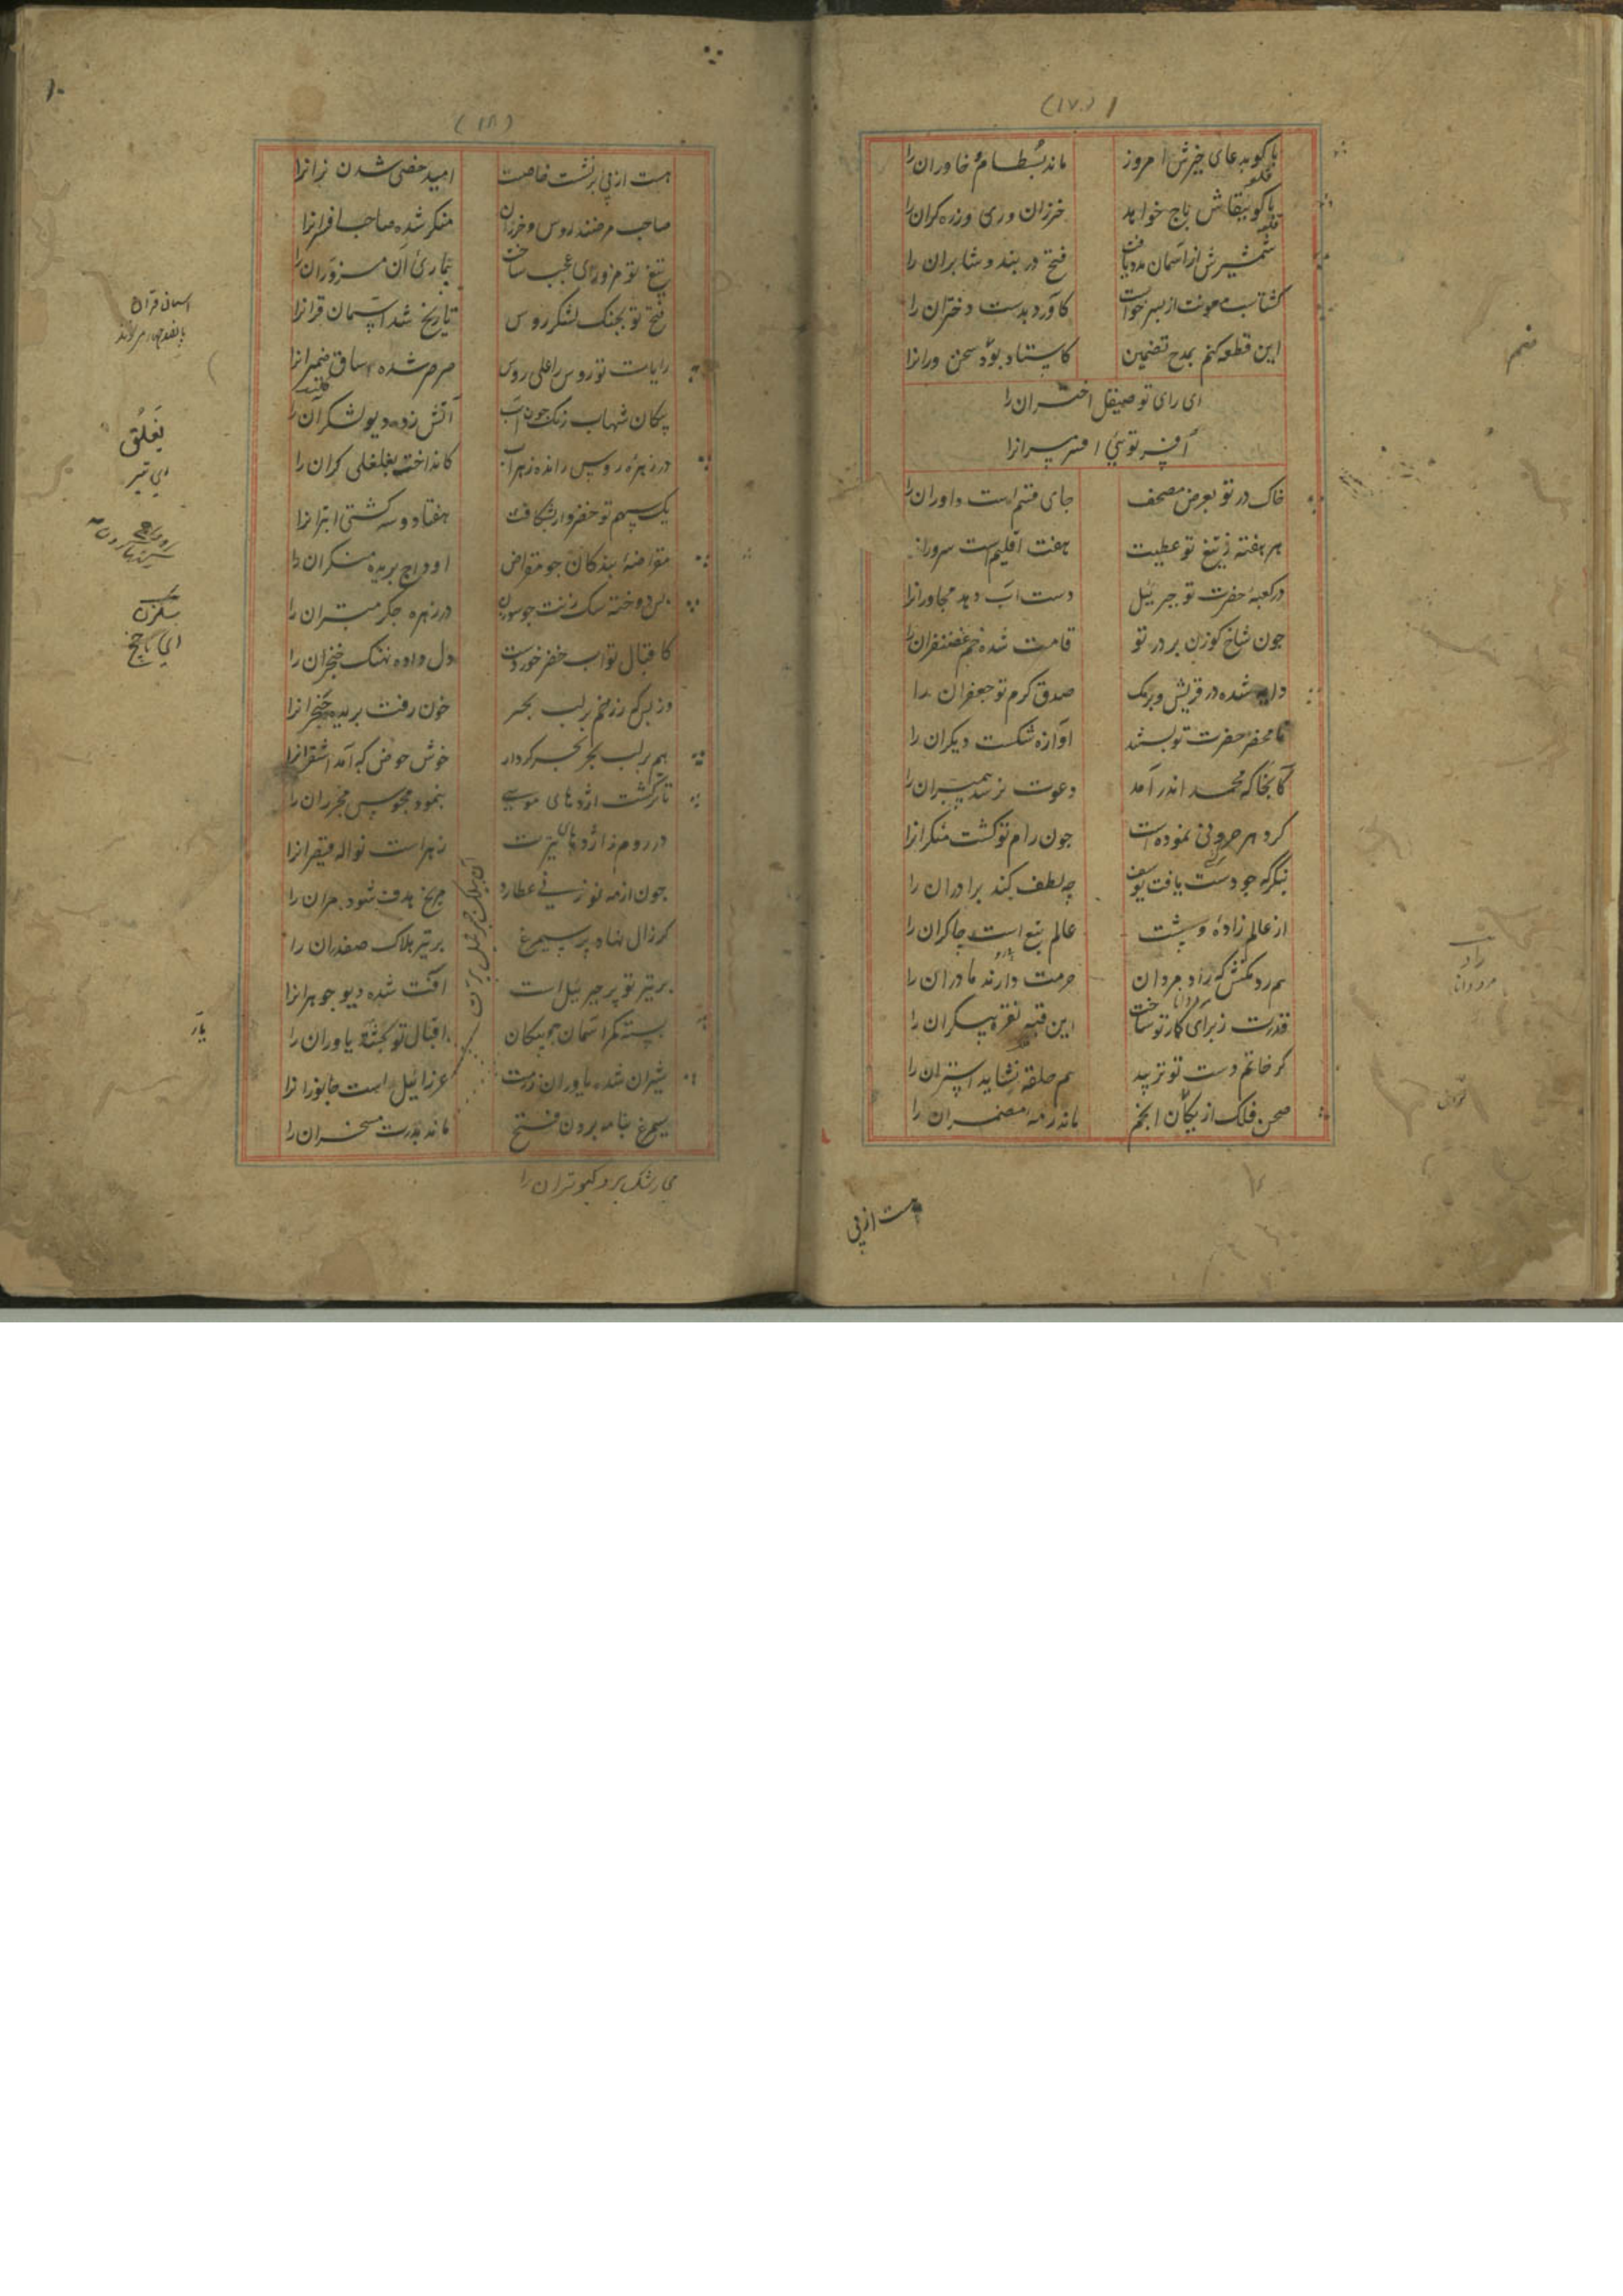 (۱۷)
باکو بدعای خیرش امروز ماند بسطام خاوران را
باکو ببقاش باج خواهد خزران و ری و زره کران را
شمشیرش از آسمان مدد یافت فتح دربند و شابران را
کشتاسب معونت از پسر خواست کاورد بدست دختران را
این قطعه کنم بمدح تضمین کاستاد بود سخن ورانرا
ای رای تو صیقل اختران را
افسر توئی افسر سرانرا
خاک در تو بعرض مصحف جای قسم است داوران را
هر هفته ز تیغ تو عطیت هفت اقلیم است سرورانرا
در کعبهٔ حضرت تو جبرئیل دست آب دهد مجاورانرا
جون شاخ کوزن بر در تو قامت شده خم غضنفران را
شده در قریش و برمک صدق کرم تو جعفران را
تا محضر حضرت تو آوازه شکست دیکران را
آنجا که محمد اندر آمد دعوت نرسد پیمبران را
کرد هر حرونی نموده است جون رام تو کشت منکرانرا
بنکر که جو دست یافت یوسف چه لطف کند برادران را
از عالم زادهٔ و پیشت عالم تبع است چاکران را
هم رد مکنش که راد مردان حرمت دارند مادران را
قدرت ز برای کار تو ساخت این قبه نغز بیکران را
کر خاتم دست تو نزیبد هم حلقه نشاید استران را
صحن فلک از بکان انجم ماند رمه مضمران را
هست از پی
راد
(۱۸)
هست از پی برنشست خاصت امید خصی شدن نرانرا
صاحب غرضند روس و خزران منکر شده صاحب افسرانرا
تیغ تو مزوری عجب ساخت بیماری آن مزوران را
فتح تو بجنک لشکر روس تاریخ شد آسمان قرانرا
رایات تو روس را علی روس صرصر شده ساق ضمیرانرا
پیکان شهاب رنک جون آب آتش زده دیو لشکران را
در زهرهٔ روس رانده زهراب کانداخت یغلغلی کران را
یک سهم تو خضروار بشکافت هفتاد و سه کشتی ابترانرا
مقراضهٔ بندکان جو مقراض اوداج بریده منکران را
بس دوخته سک زنت جو سوزن در زهره جکر مبتران را
کاقبال تو آب خضر خوردست دل داده نهنک خنجران را
وز بس که ز زخم بر لب بحر خون رفت بریده حنجرانرا
هم بر لب بحر بحر کردار خوش حوض که آمد اشقرانرا
تا کشت اژدهای موسی بنمود مجوس مخبران را
در روم ز اژدهای تیرت زهراست نواله قیصرانرا
جون از مه نو زنی عطارد مریخ هدف شود مران را
کر زال نهاد پر سیمرغ بر تیر هلاک صفدران را
بر تیر تو پر جبرئیل است آفت شده دیو جوهرانرا
بسته کمر آسمان جو پیکان اقبال تو یاوران را
شیران شده یاوران رزمت عزرائیل است جانورانرا
سیمرغ بنامه بردن فتح ماند بدرت مسخران را
می رشک برد کبوتران را
یغلق
ای تیر
سکزن